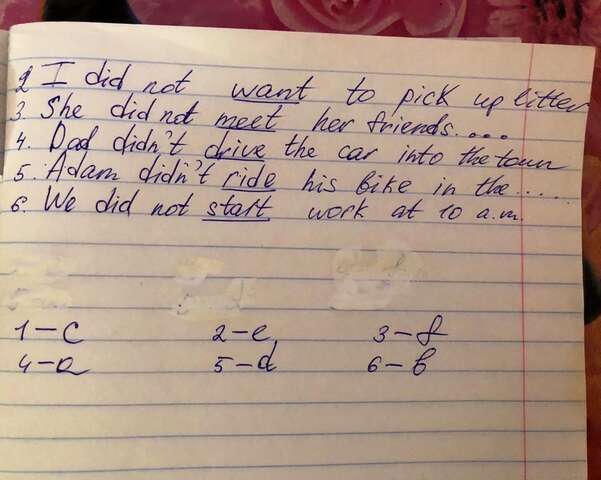 2 I did not want to pick up litter
3. She did not meet her friends....
4. Dad didn't drive the car into the town
5. Adam didn't ride his bike in the......
6. We did not start work at 10 a.m.
1-c 2-e 3-f
4-a 5-d 6-b